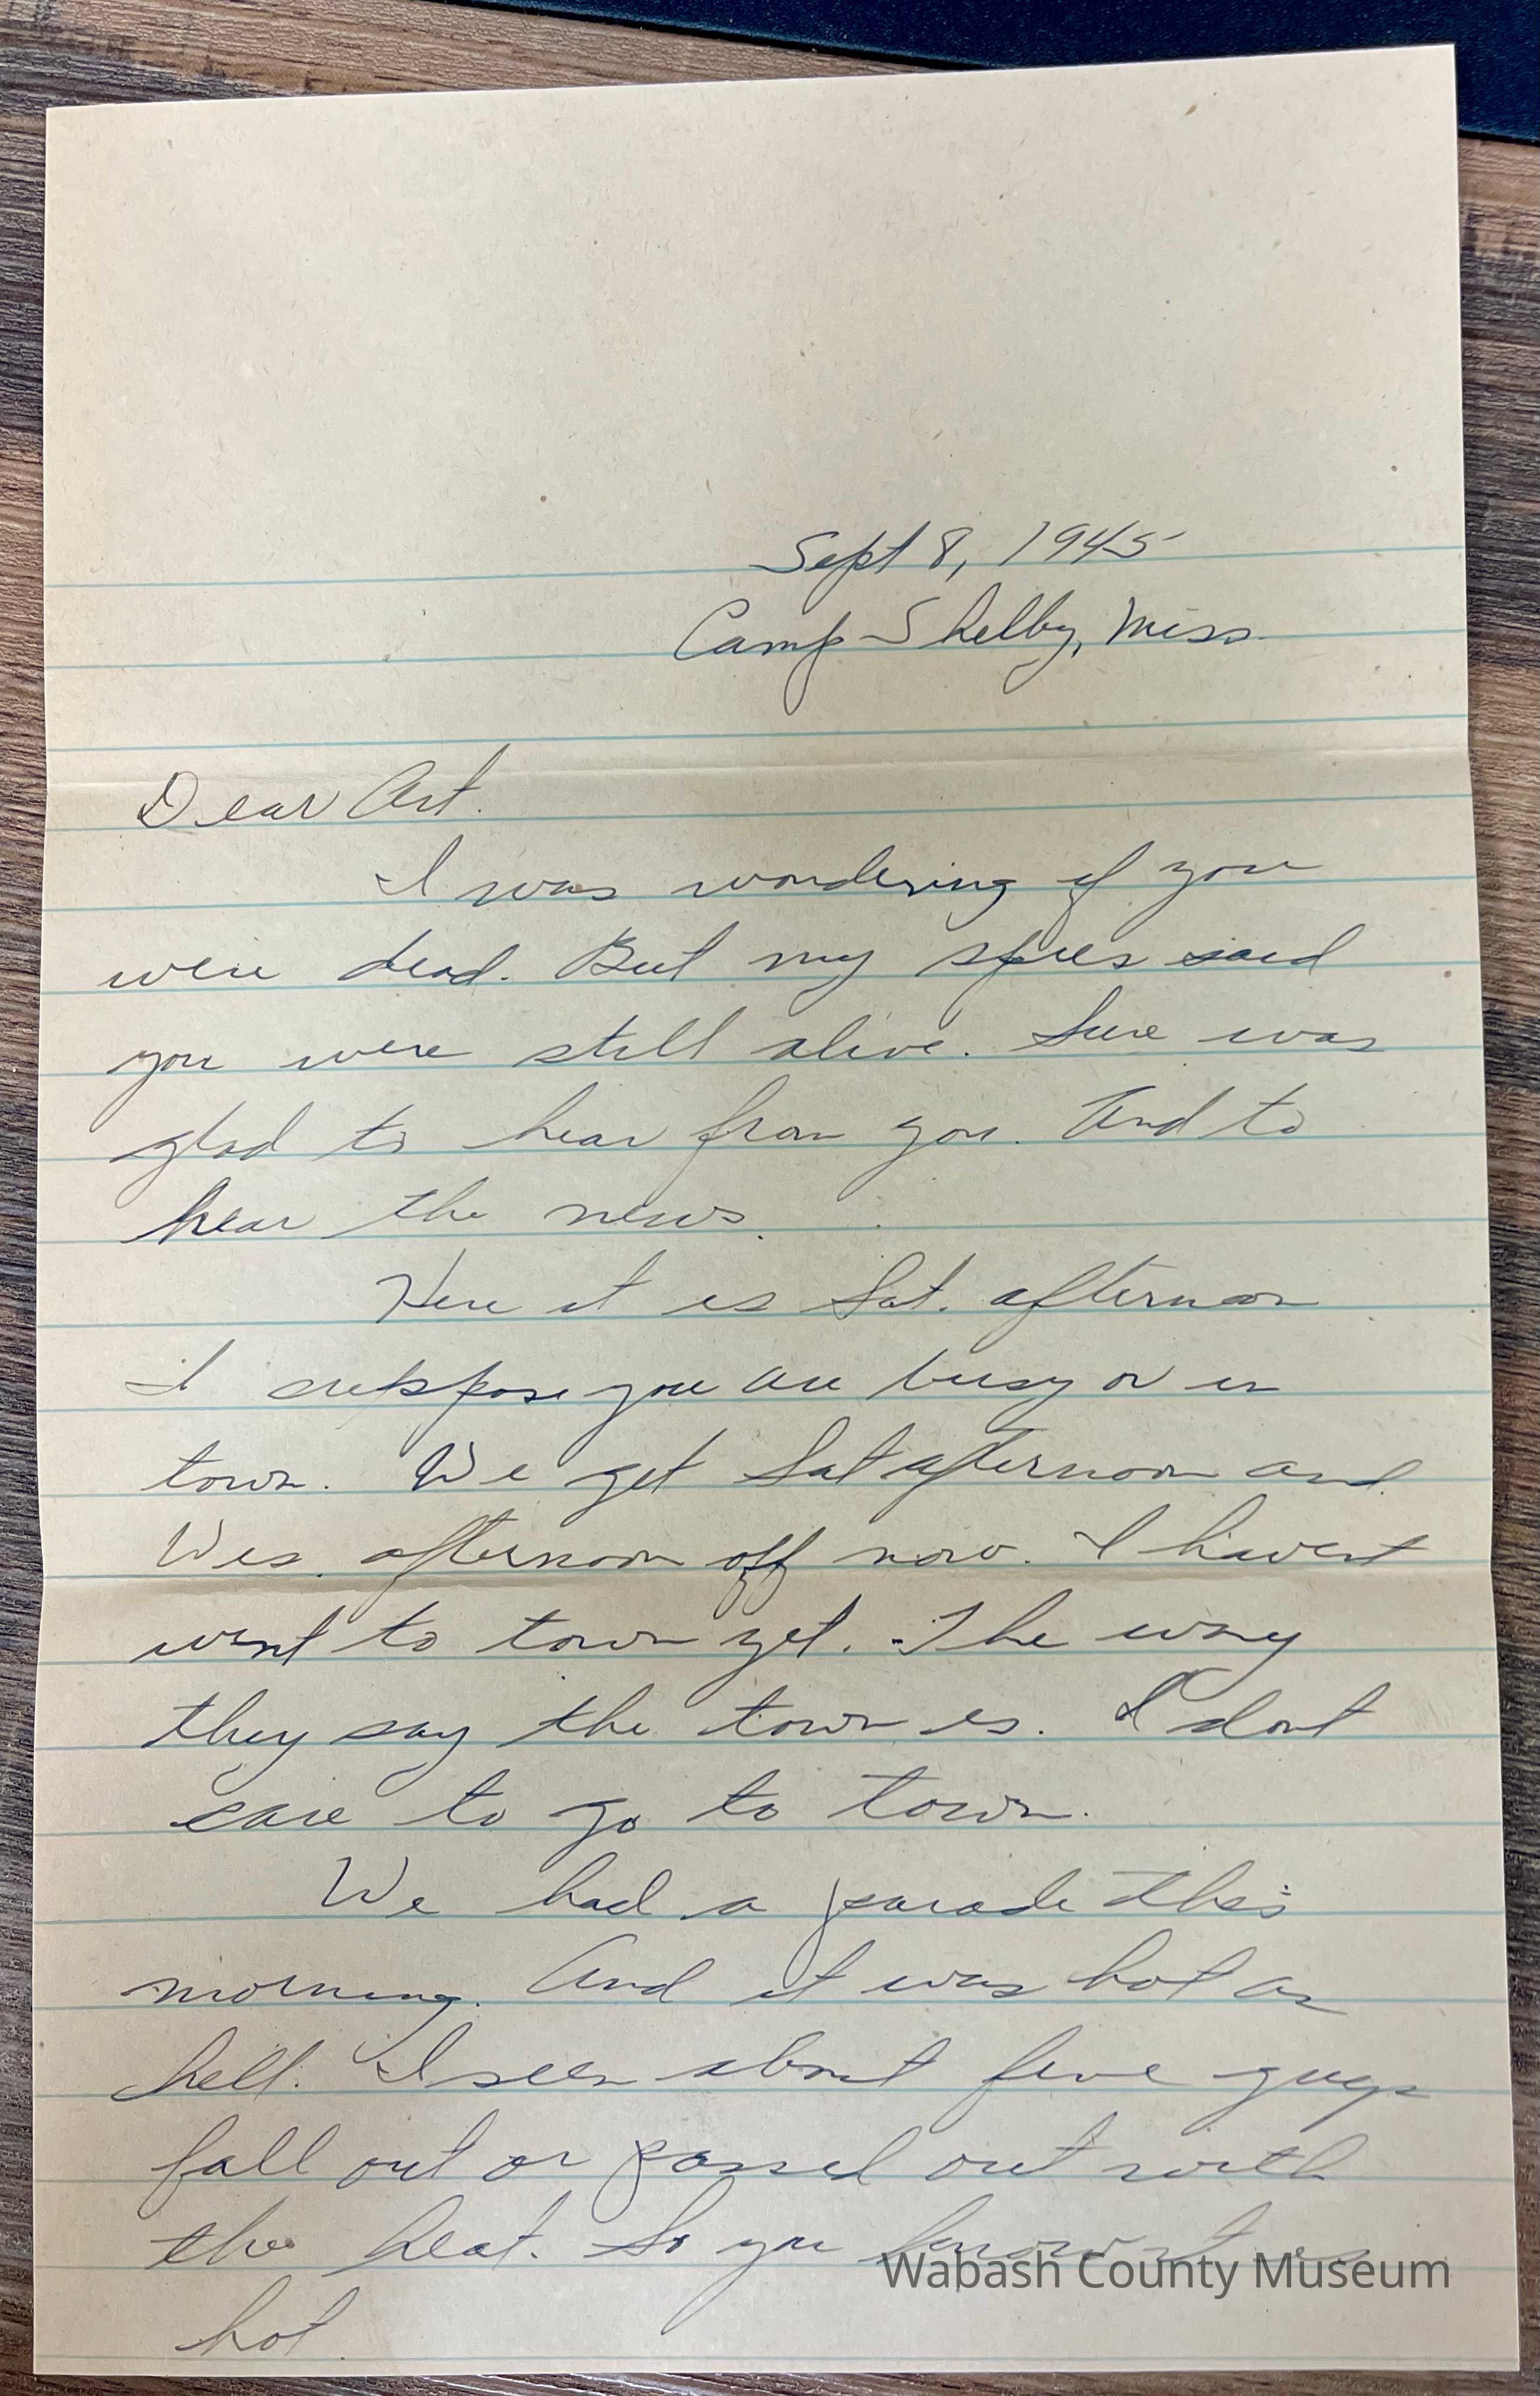 Sept 8, 1945
Camp Shelby, Miss.
Dear Art.
I was wondering if you
were dead. But my spies said
you were still alive. Sure was
glad to hear from you. And to
hear the news.
Here it is Sat. afternoon
I suppose you are busy or in
town. We get Sat afternoon and
Wes. afternoon off now. I havent
went to town yet. The way
they say the town is. I dont
care to go to town.
We had a parade this
morning. And it was hot as
hell. I seen about five guys
fall out or passed out with
the heat. So you know it is
hot.
Wabash County Museum